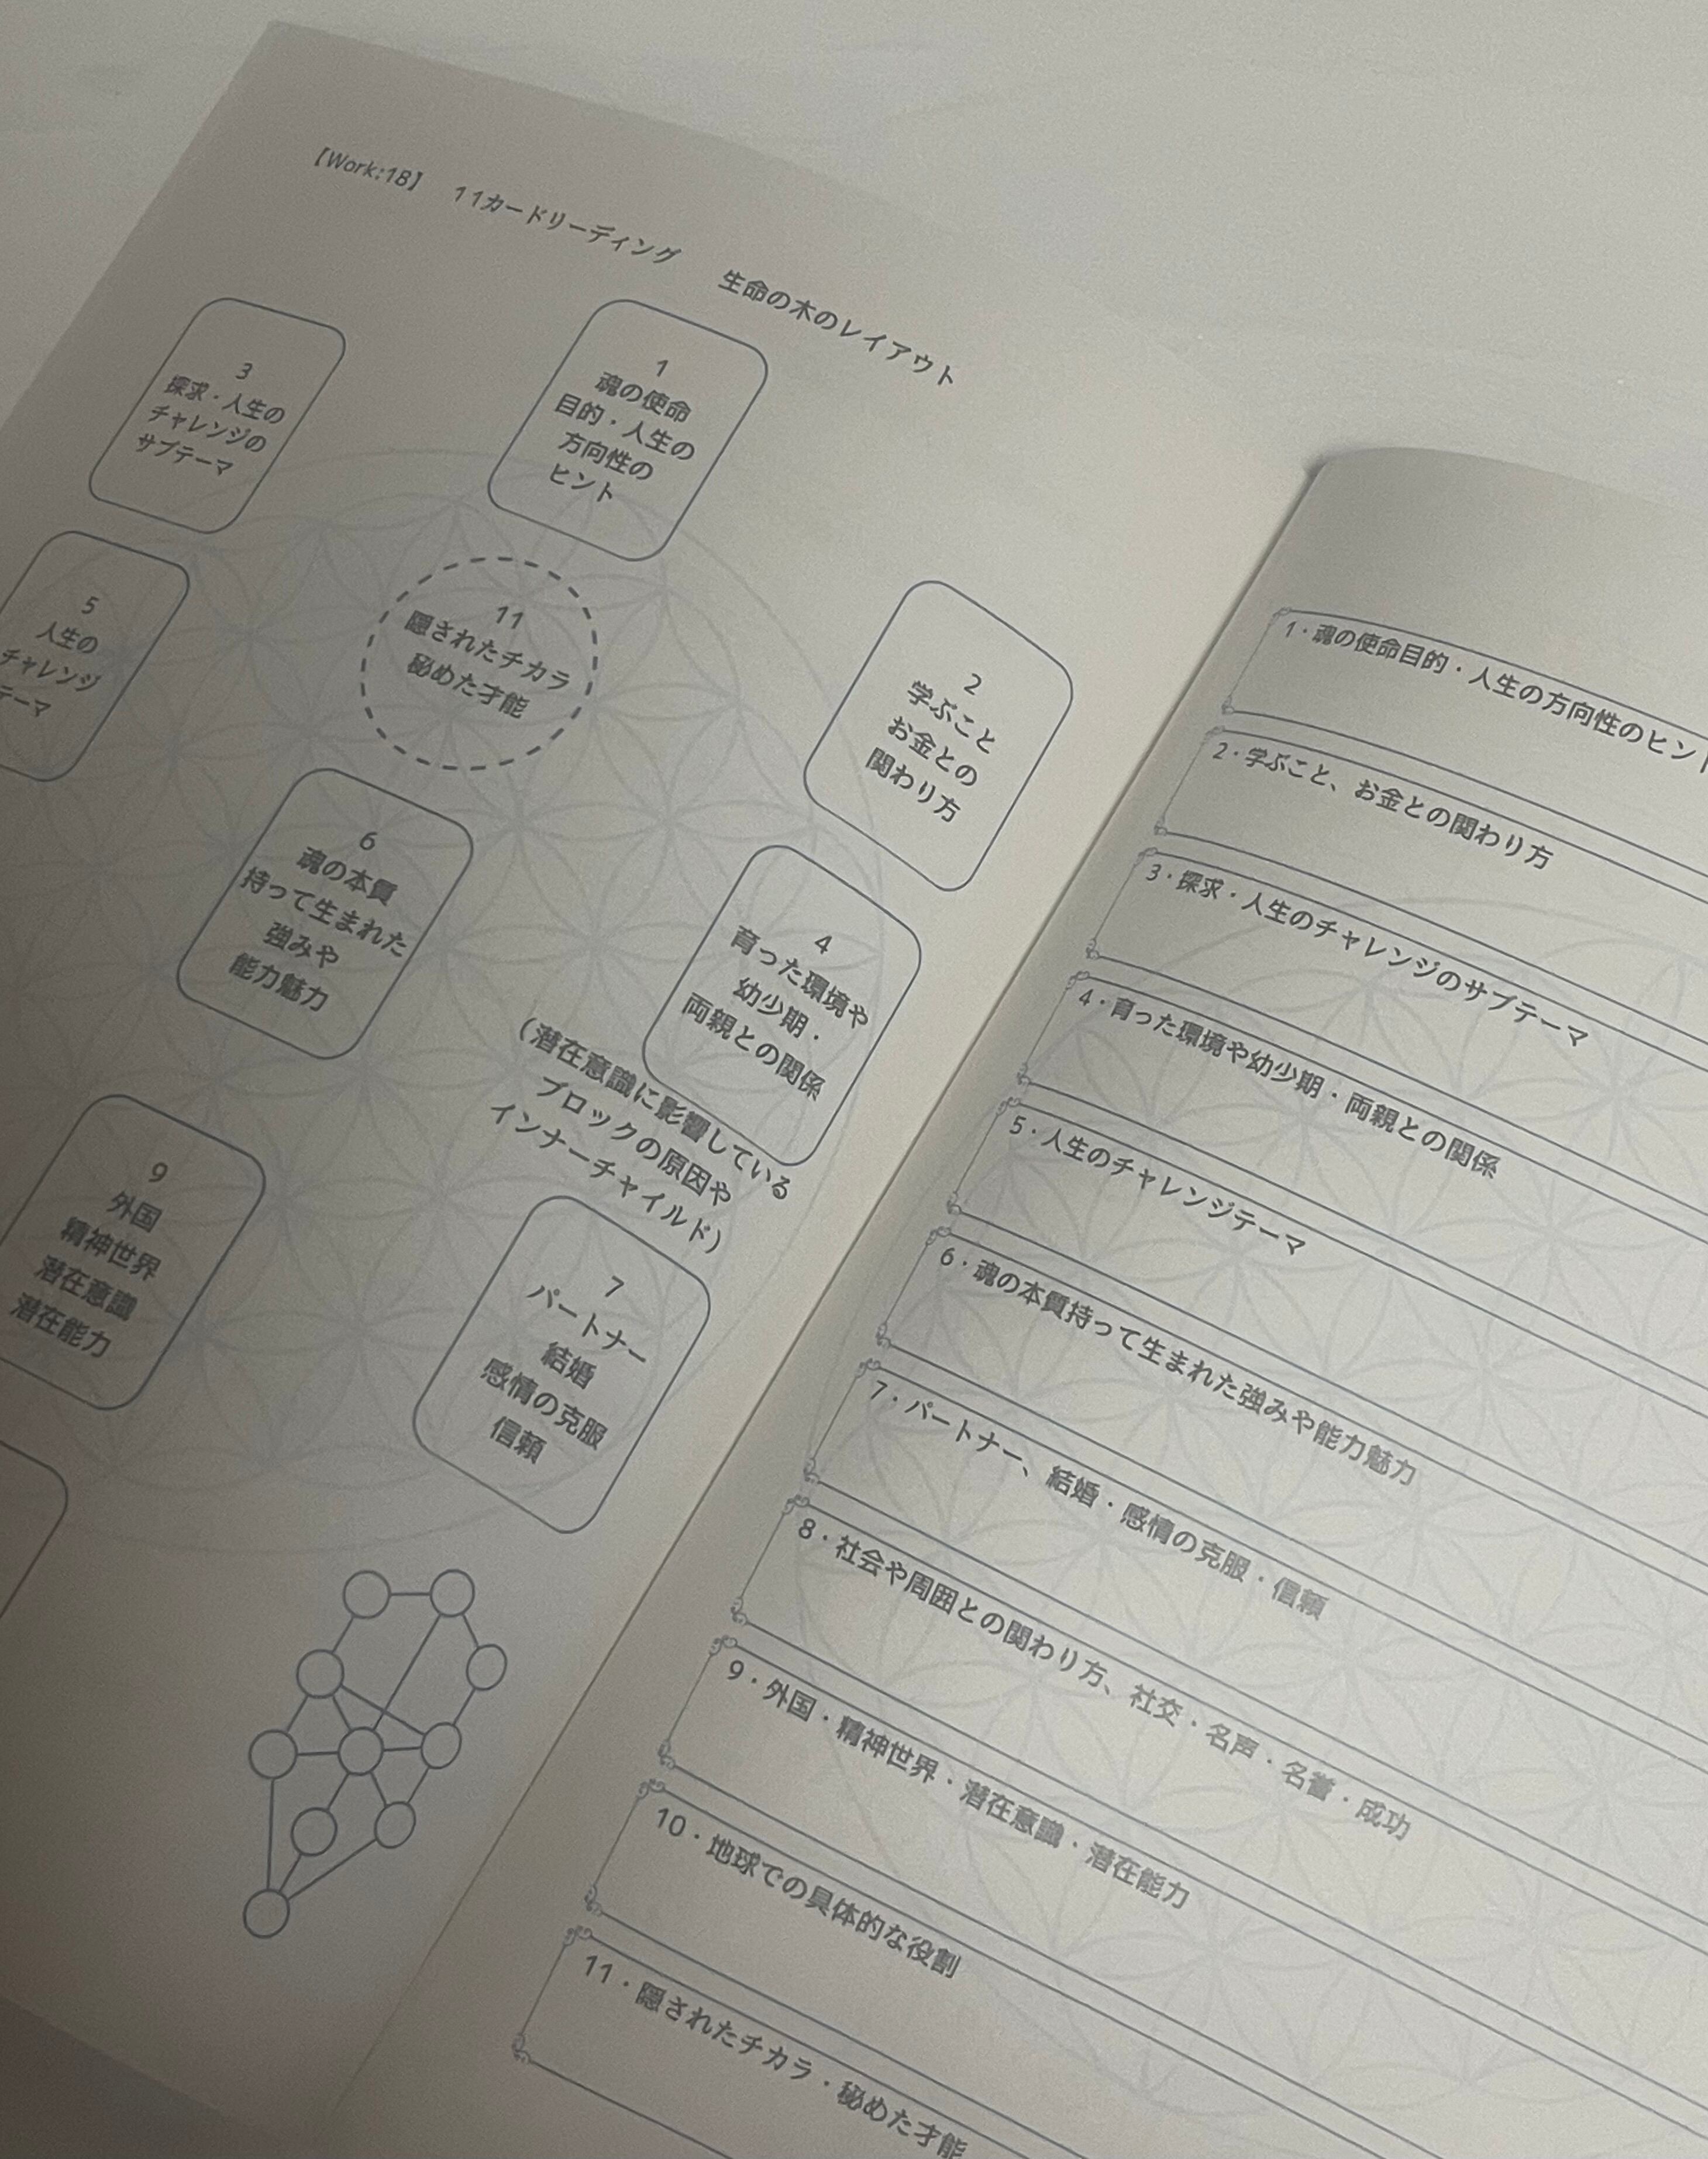 【Work:18】　11カードリーディング　生命の木のレイアウト
3
探求・人生の
チャレンジの
サブテーマ
1
魂の使命
目的・人生の
方向性の
ヒント
5
人生の
チャレンジ
テーマ
11
隠されたチカラ
秘めた才能
2
学ぶこと
お金との
関わり方
6
魂の本質
持って生まれた
強みや
能力魅力
4
育った環境や
幼少期・
両親との関係
(潜在意識に影響している
ブロックの原因や
インナーチャイルド)
9
外国
精神世界
潜在意識
潜在能力
7
パートナー
結婚
感情の克服
信頼
1・魂の使命目的・人生の方向性のヒント
2・学ぶこと、お金との関わり方
3・探求・人生のチャレンジのサブテーマ
4・育った環境や幼少期・両親との関係
5・人生のチャレンジテーマ
6・魂の本質持って生まれた強みや能力魅力
7・パートナー、結婚・感情の克服・信頼
8・社会や周囲との関わり方、社交・名声・名誉・成功
9・外国・精神世界・潜在意識・潜在能力
10・地球での具体的な役割
11・隠されたチカラ・秘めた才能